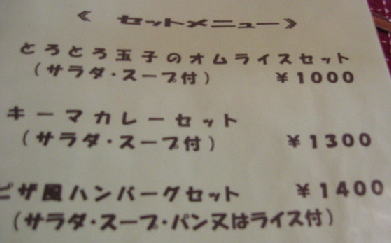 《 セットメニュー》
とろとろ玉子のオムライスセット
(サラダ・スープ付) ¥1000
キーマカレーセット
(サラダ・スープ付) ¥1300
ピザ風ハンバーグセット ¥1400
(サラダ・スープ・パン又はライス付)